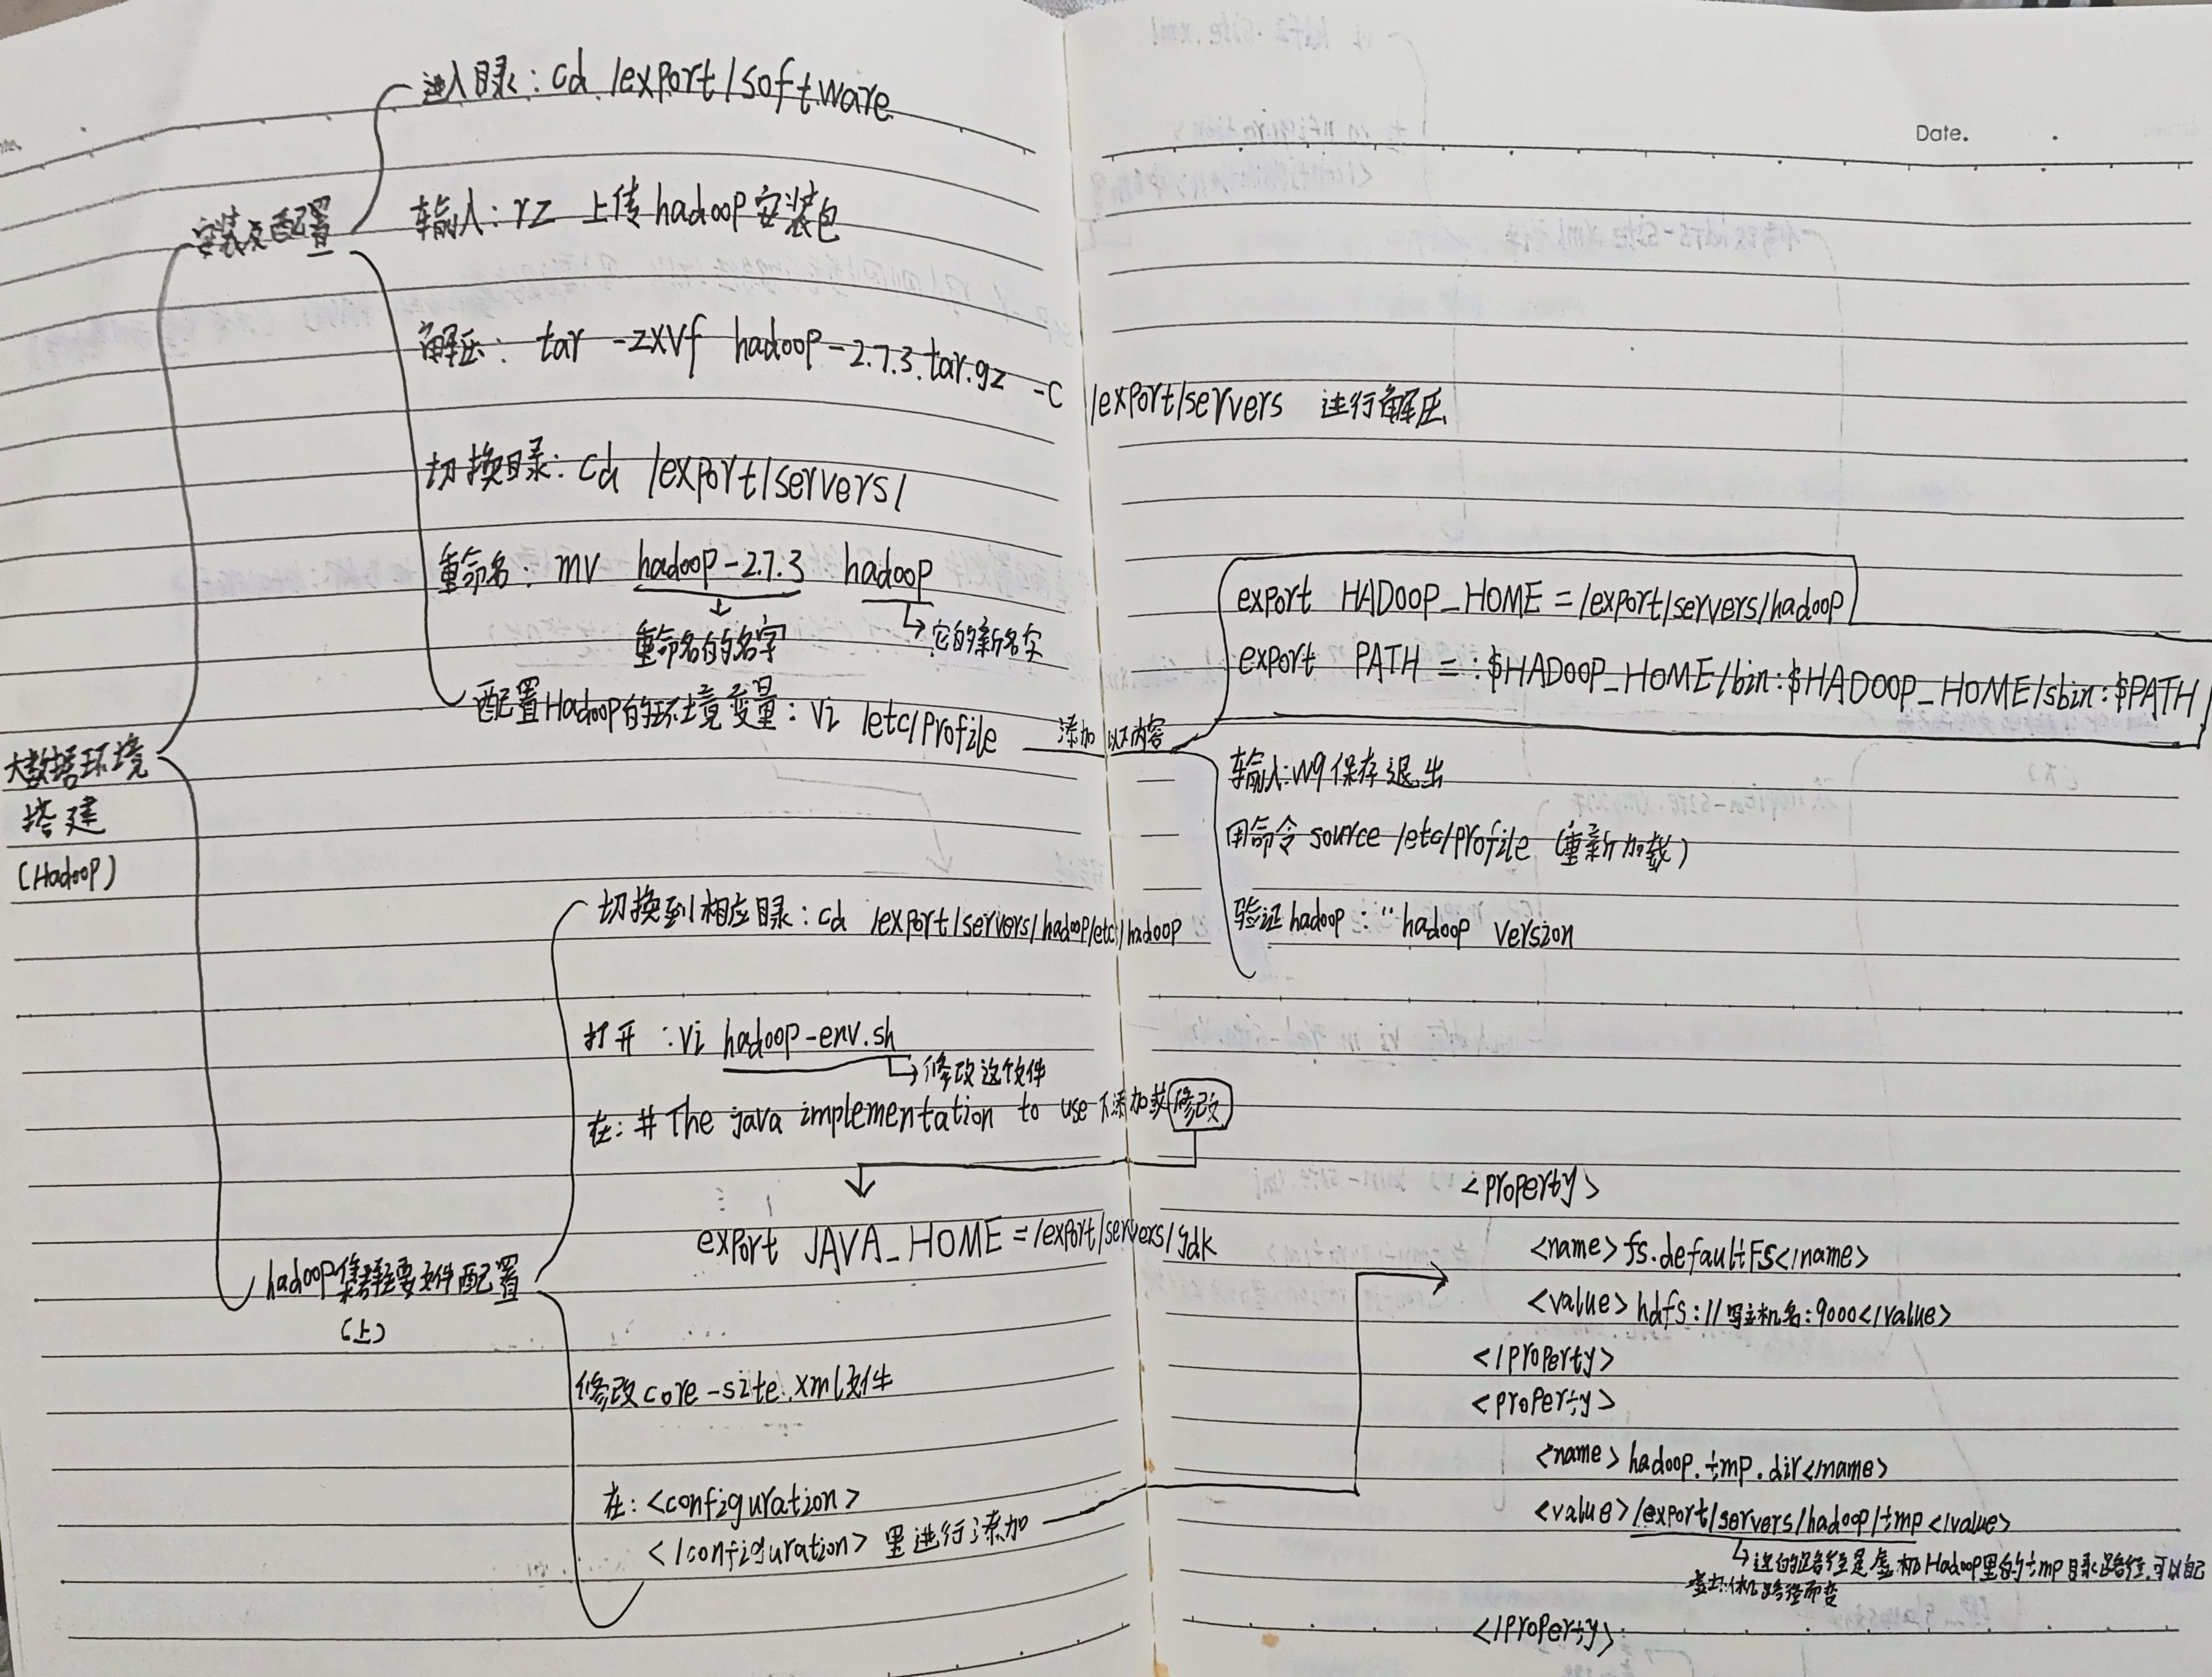 Date.
大数据环境
搭建
(Hadoop)
安装及配置
进入目录: cd /export/software
输入: rz 上传hadoop安装包
解压: tar -zxvf hadoop-2.7.3.tar.gz -C /export/servers 进行解压
切换目录: cd /export/servers/
重命名: mv hadoop-2.7.3 hadoop
重命名的名字
它的新名字
配置Hadoop的环境变量: vi /etc/profile
添加以下内容
export HADOOP_HOME=/export/servers/hadoop
export PATH=:$HADOOP_HOME/bin:$HADOOP_HOME/sbin:$PATH
输入:wq保存退出
用命令 source /etc/profile (重新加载)
验证hadoop: "hadoop version
hadoop集群主要文件配置
(上)
切换到相应目录: cd /export/servers/hadoop/etc/hadoop
打开: vi hadoop-env.sh
修改这个文件
在: # The java implementation to use 下添加或修改
export JAVA_HOME=/export/servers/jdk
修改core-site.xml文件
在: <configuration>
</configuration> 里进行添加
<property>
<name>fs.defaultFS</name>
<value>hdfs://写主机名:9000</value>
</property>
<property>
<name>hadoop.tmp.dir</name>
<value>/export/servers/hadoop/tmp</value>
Hadoop里的tmp目录路径,可以自己
路径而变
</property>